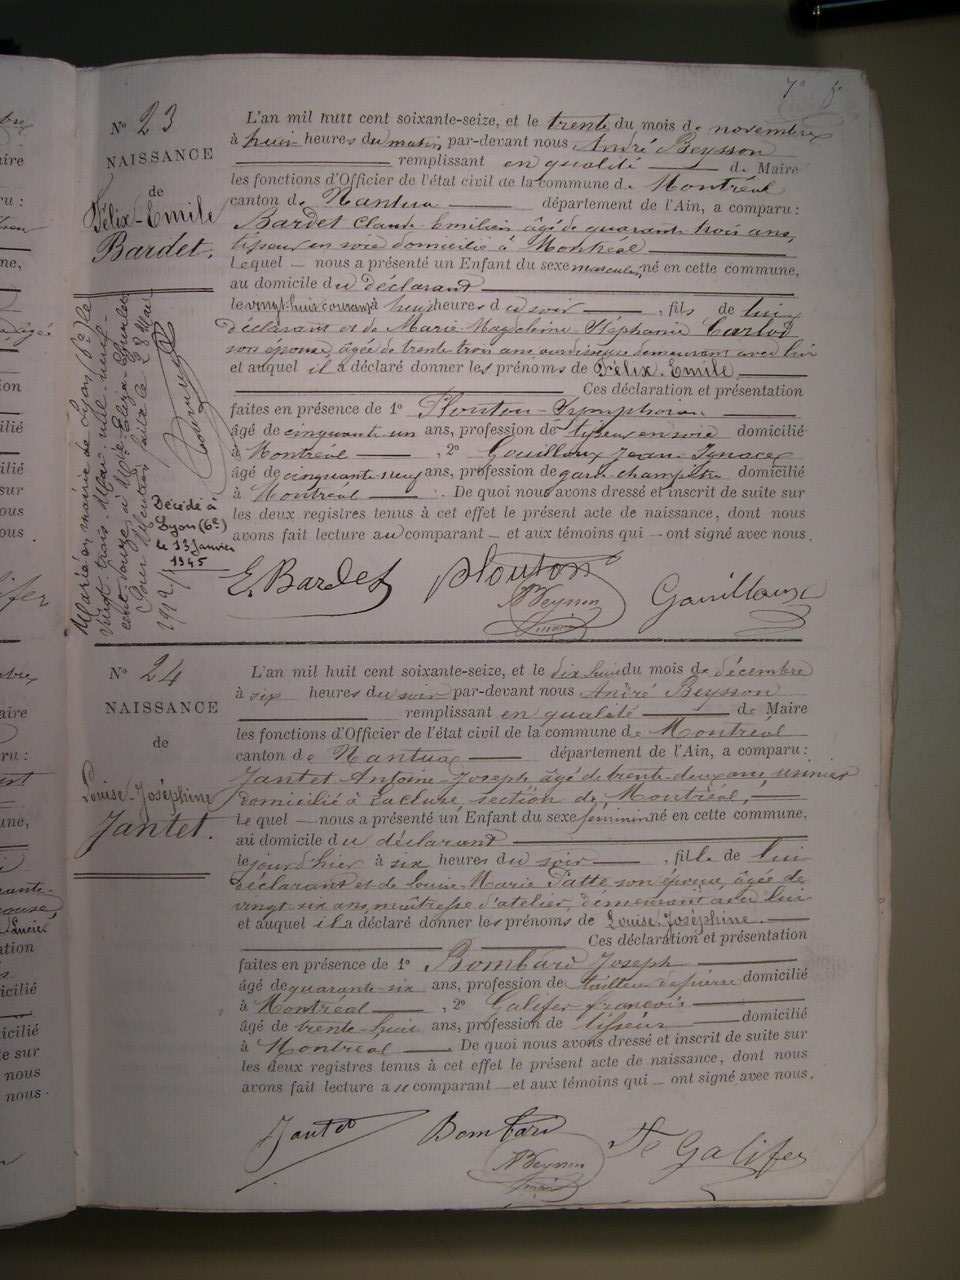 7e 5
No 23
NAISSANCE
de
Félix-Emile
Bardet.
L'an mil huit cent soixante-seize, et le trente du mois de novembre
à huit heures du matin par-devant nous André Beysson
remplissant en qualité de Maire
les fonctions d'Officier de l'état civil de la commune de Montréal
canton de Nantua département de l'Ain, a comparu :
Bardet Claude Emilien âgé de quarante trois ans,
tisseur en soie domicilié à Montréal
Lequel nous a présenté un Enfant du sexe masculin, né en cette commune,
au domicile du déclarant
le vingt-huit courant à heures du soir , fils de lui
déclarant et de Marie Magdeleine Stéphanie Carlod
son épouse, âgée de trente trois ans, ourdisseuse demeurant avec lui
et auquel il a déclaré donner les prénoms de Félix-Emile
Ces déclaration et présentation
faites en présence de 1o Plouton Symphorien
âgé de cinquante-un ans, profession de tisseur en soie domicilié
à Montréal , 2o Gouilloux Jean Ignace
âgé de cinquante neuf ans, profession de garde-champêtre domicilié
à Montréal . De quoi nous avons dressé et inscrit de suite sur
les deux registres tenus à cet effet le présent acte de naissance, dont nous
avons fait lecture au comparant et aux témoins qui ont signé avec nous.
Marié en mairie de Lyon (6e) le
vingt-trois Mars mil neuf-
cent douze à Elisa
Pour Mention faite le 28 Mai
1912
Décédé à
Lyon (6e)
le 13 Janvier
1945
E. Bardet Plouton Gouilloux
No 24
NAISSANCE
de
Louise-Joséphine
Jantet.
L'an mil huit cent soixante-seize, et le dix huit du mois de décembre
à six heures du soir par-devant nous André Beysson
remplissant en qualité de Maire
les fonctions d'Officier de l'état civil de la commune de Montréal
canton de Nantua département de l'Ain, a comparu :
Jantet Antoine-Joseph âgé de trente-deux ans, usinier
domicilié à Lacluse, section de Montréal,
Lequel nous a présenté un Enfant du sexe féminin né en cette commune,
au domicile du déclarant
le jour d'hier à six heures du soir , fille de lui
déclarant et de Louise Marie son épouse, âgée de
vingt-six ans, maîtresse d'atelier, demeurant avec lui
et auquel il a déclaré donner les prénoms de Louise-Joséphine.
Ces déclaration et présentation
faites en présence de 1o Bombard Joseph
âgé de quarante-six ans, profession de tailleur de pierre domicilié
à Montréal , 2o Galifer françois
âgé de trente-huit ans, profession de tisseur domicilié
à Montréal . De quoi nous avons dressé et inscrit de suite sur
les deux registres tenus à cet effet le présent acte de naissance, dont nous
avons fait lecture au comparant et aux témoins qui ont signé avec nous.
Jantet Bombard Galifer